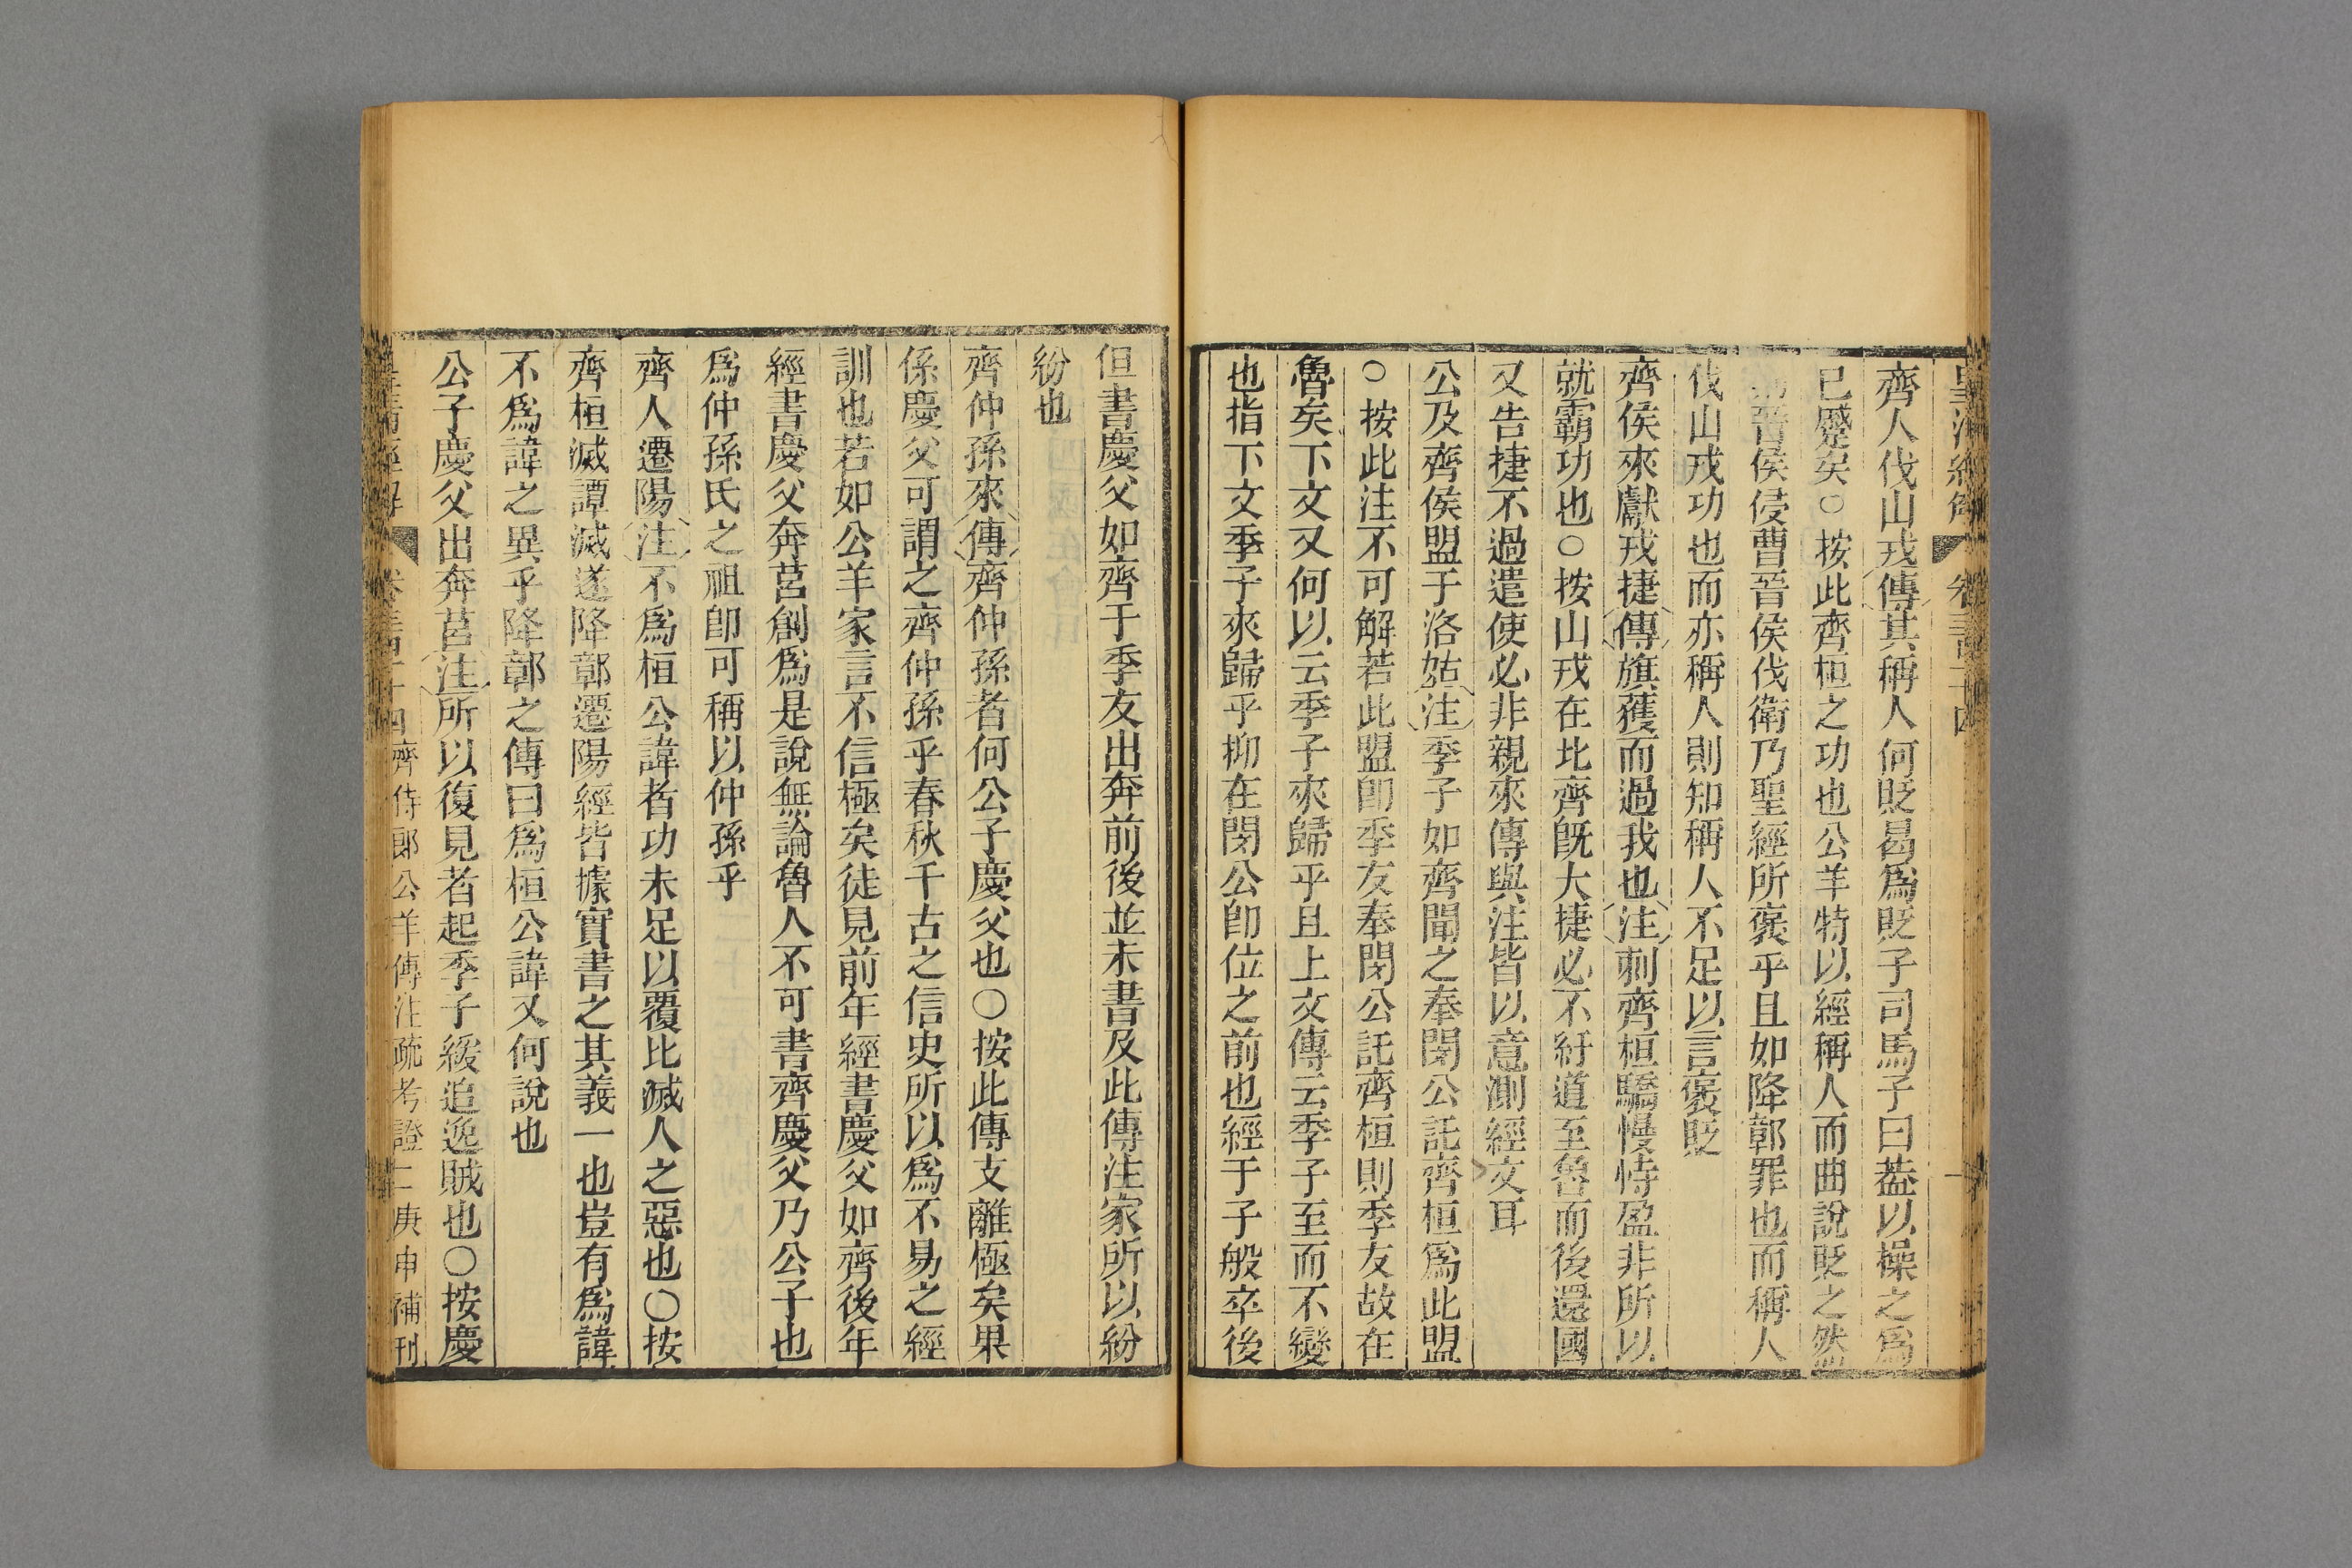 皇清經解
齊人伐山戎傳其稱人何貶曷爲貶子司馬子曰葢以操之爲
已蹙矣○按此齊桓之功也公羊特以經稱人而曲說貶之然
晉侯侵曹晉侯伐衛乃聖經所褒乎且如降鄣罪也而稱人
伐山戎功也而亦稱人則知稱人不足以言褒貶
齊侯來獻戎捷傳旗獲而過我也注刺齊桓驕慢恃盈非所以
就霸功也○按山戎在北齊旣大捷必不紆道至魯而後還國
又告捷不過遣使必非親來傳與注皆以意測經文耳
公及齊侯盟于洛姑注季子如齊聞之奉閔公託齊桓爲此盟
○按此注不可解若此盟卽季友奉閔公託齊桓則季友故在
魯矣下文又何以云季子來歸乎且上文傳云季子至而不變
也指下文季子來歸乎抑在閔公卽位之前也經于子般卒後
但書慶父如齊于季友出奔前後並未書及此傳注家所以紛
紛也
齊仲孫來傳齊仲孫者何公子慶父也○按此傳支離極矣果
係慶父可謂之齊仲孫乎春秋千古之信史所以爲不易之經
訓也若如公羊家言不信極矣徒見前年經書慶父如齊後年
經書慶父奔莒創爲是說無論魯人不可書齊慶父乃公子也
爲仲孫氏之祖卽可稱以仲孫乎
齊人遷陽注不爲桓公諱者功未足以覆比滅人之惡也○按
齊桓滅譚滅遂降鄣遷陽經皆據實書之其義一也豈有爲諱
不爲諱之異乎降鄣之傳曰爲桓公諱又何說也
公子慶父出奔莒注所以復見者起季子緩追逸賊也○按慶
齊侍郎公羊傳注疏考證二庚申補刊